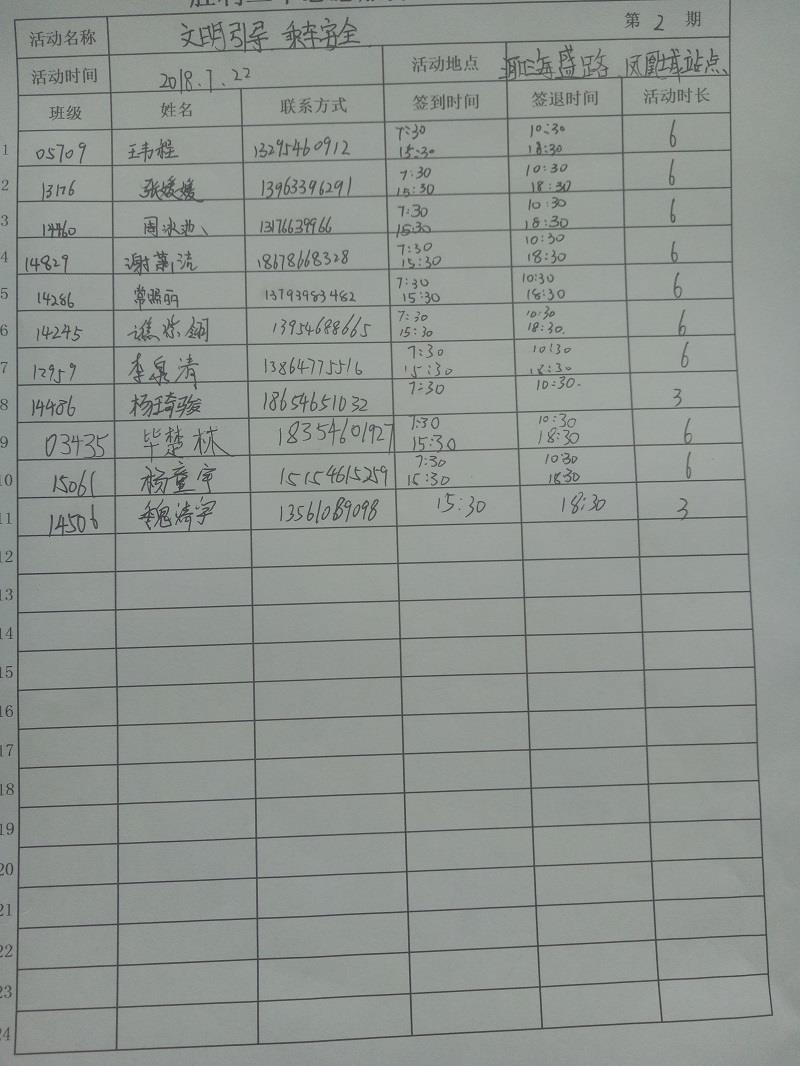 第 2 期
活动名称 文明引导 乘车安全
活动时间 2018.7.22 活动地点 海盛路 凤凰城站点
班级 姓名 联系方式 签到时间 签退时间 活动时长
1 05709 王韦程 13295460912 7:30 15:30 10:30 18:30 6
2 13176 张媛媛 13963396291 7:30 15:30 10:30 18:30 6
3 14460 周冰 13176639966 7:30 15:30 10:30 18:30 6
4 14829 谢 洁 18678668328 7:30 15:30 10:30 18:30 6
5 14286 常照丽 13793983482 7:30 15:30 10:30 18:30 6
6 14245 13954688665 7:30 15:30 10:30 18:30. 6
7 12959 李泉清 13864775516 7:30 15:30 10:30 18:30 6
8 14486 杨钰骏 18654651032 7:30 10:30. 3
9 03435 毕楚林 18354601927 7:30 15:30 10:30 18:30 6
10 15061 杨童宇 15154615259 7:30 15:30 10:30 18:30 6
11 14506 魏涛宇 13561089098 15:30 18:30 3
12
13
14
15
16
17
18
19
20
21
22
23
24